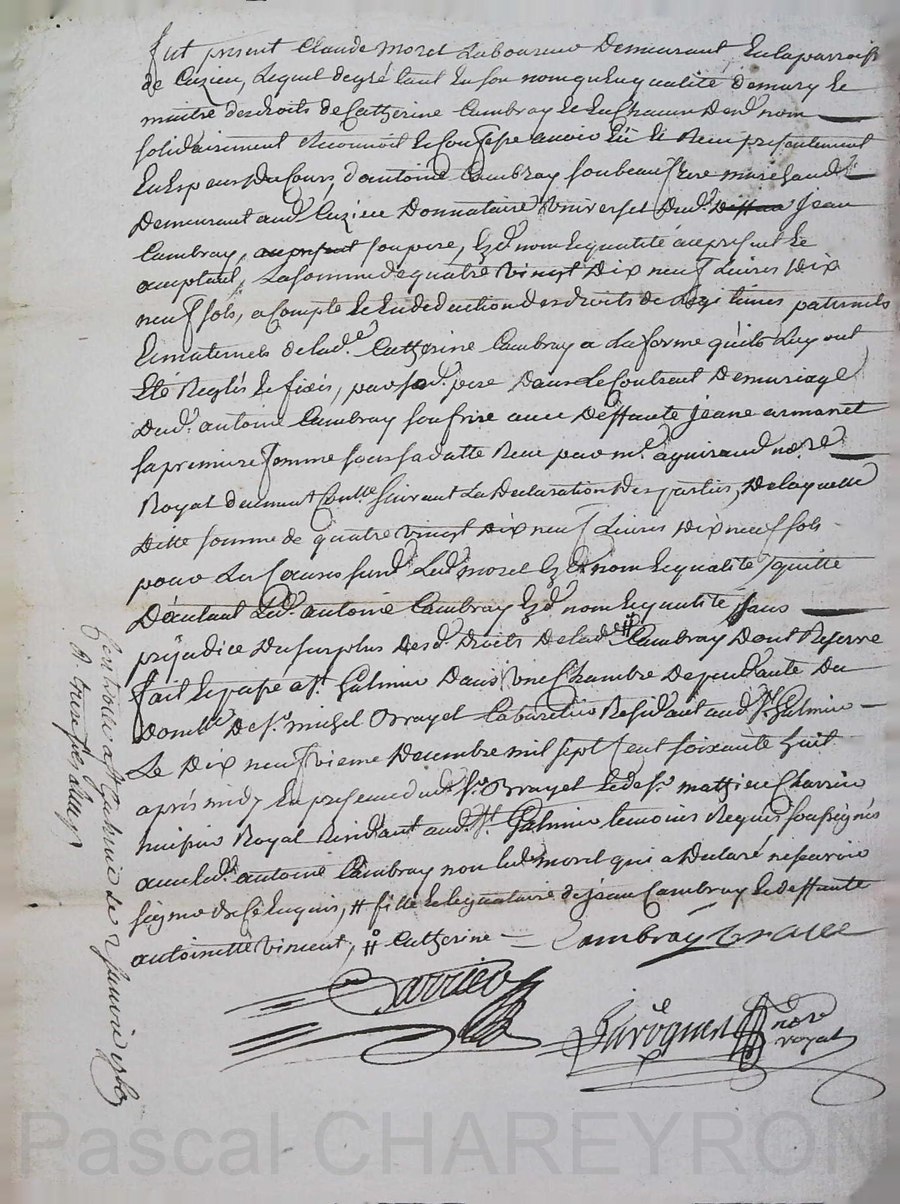 fut present Claude Morel Laboureur Demeurant En la parroisse
de Cuzieu, Lequel de gré tant En son nom qu'en qualité de mary Et
maitre des droits de Catherine Cambray Et En Chacun desd. nom
solidairement a reconnu Et Confessé avoir Eü Et Reçu présentement
En Especes du Cours, d'antoine Cambray son beau frere marchand
Demeurant aud. Cuzieu Donnataire Universel Dud. Jean
Cambray, son pere, Esd. nom Et qualité au present Et
acceptant, La somme de quatre vingt Dix neuf Livres Dix
neuf sols, a Compte Et En deduction des droits de Legitimes paternels
Et maternels de lad. Catherine Cambray a La forme qu'ils Luy ont
Eté Reglés Et fixés, par sd. pere Dans Le Contract De mariage
Dud. antoine Cambray son frere avec Deffunte jeane armanet
sa premiere femme sous sa datte Reçu par me. aguiraud nore.
Royal duement Con.lle suivant La Declaration Des parties, De laquelle
Ditte somme de quatre vingt Dix neuf Livres Dix neuf sols
pour Les Causes susd. Led. morel Esd. nom Et qualité quitte
D'autant Led. antoine Cambray Esd. nom Et qualité sans
préjudice Du surplus Desd. Droits De lad. # Cambray Dont Reserve
fait Et passé a St. Galmier Dans Une Chambre Dependante Du
Domlle. De sr. michel Orayel Cabaretier Residant aud. St. Galmier
Le Dix neufvieme Decembre mil sept Cent soixante huit
aprés midy En presence dud. sr. Orayel Et de sr. mathieu Charrin
huissier Royal Residant aud. St. Galmier temoins Requis soussignés
avec led. antoine Cambray non led. morel qui a Declaré ne sçavoir
signer de Ce Enquis, # fille Et Legitimaire de jean Cambray Et deffunte
antoinette Vincent, # Catherine
Cambray
Charrier
Laroquen nore
royal
Controlé a St Galmier le 2 Janvier 1769
Pascal CHAREYRON